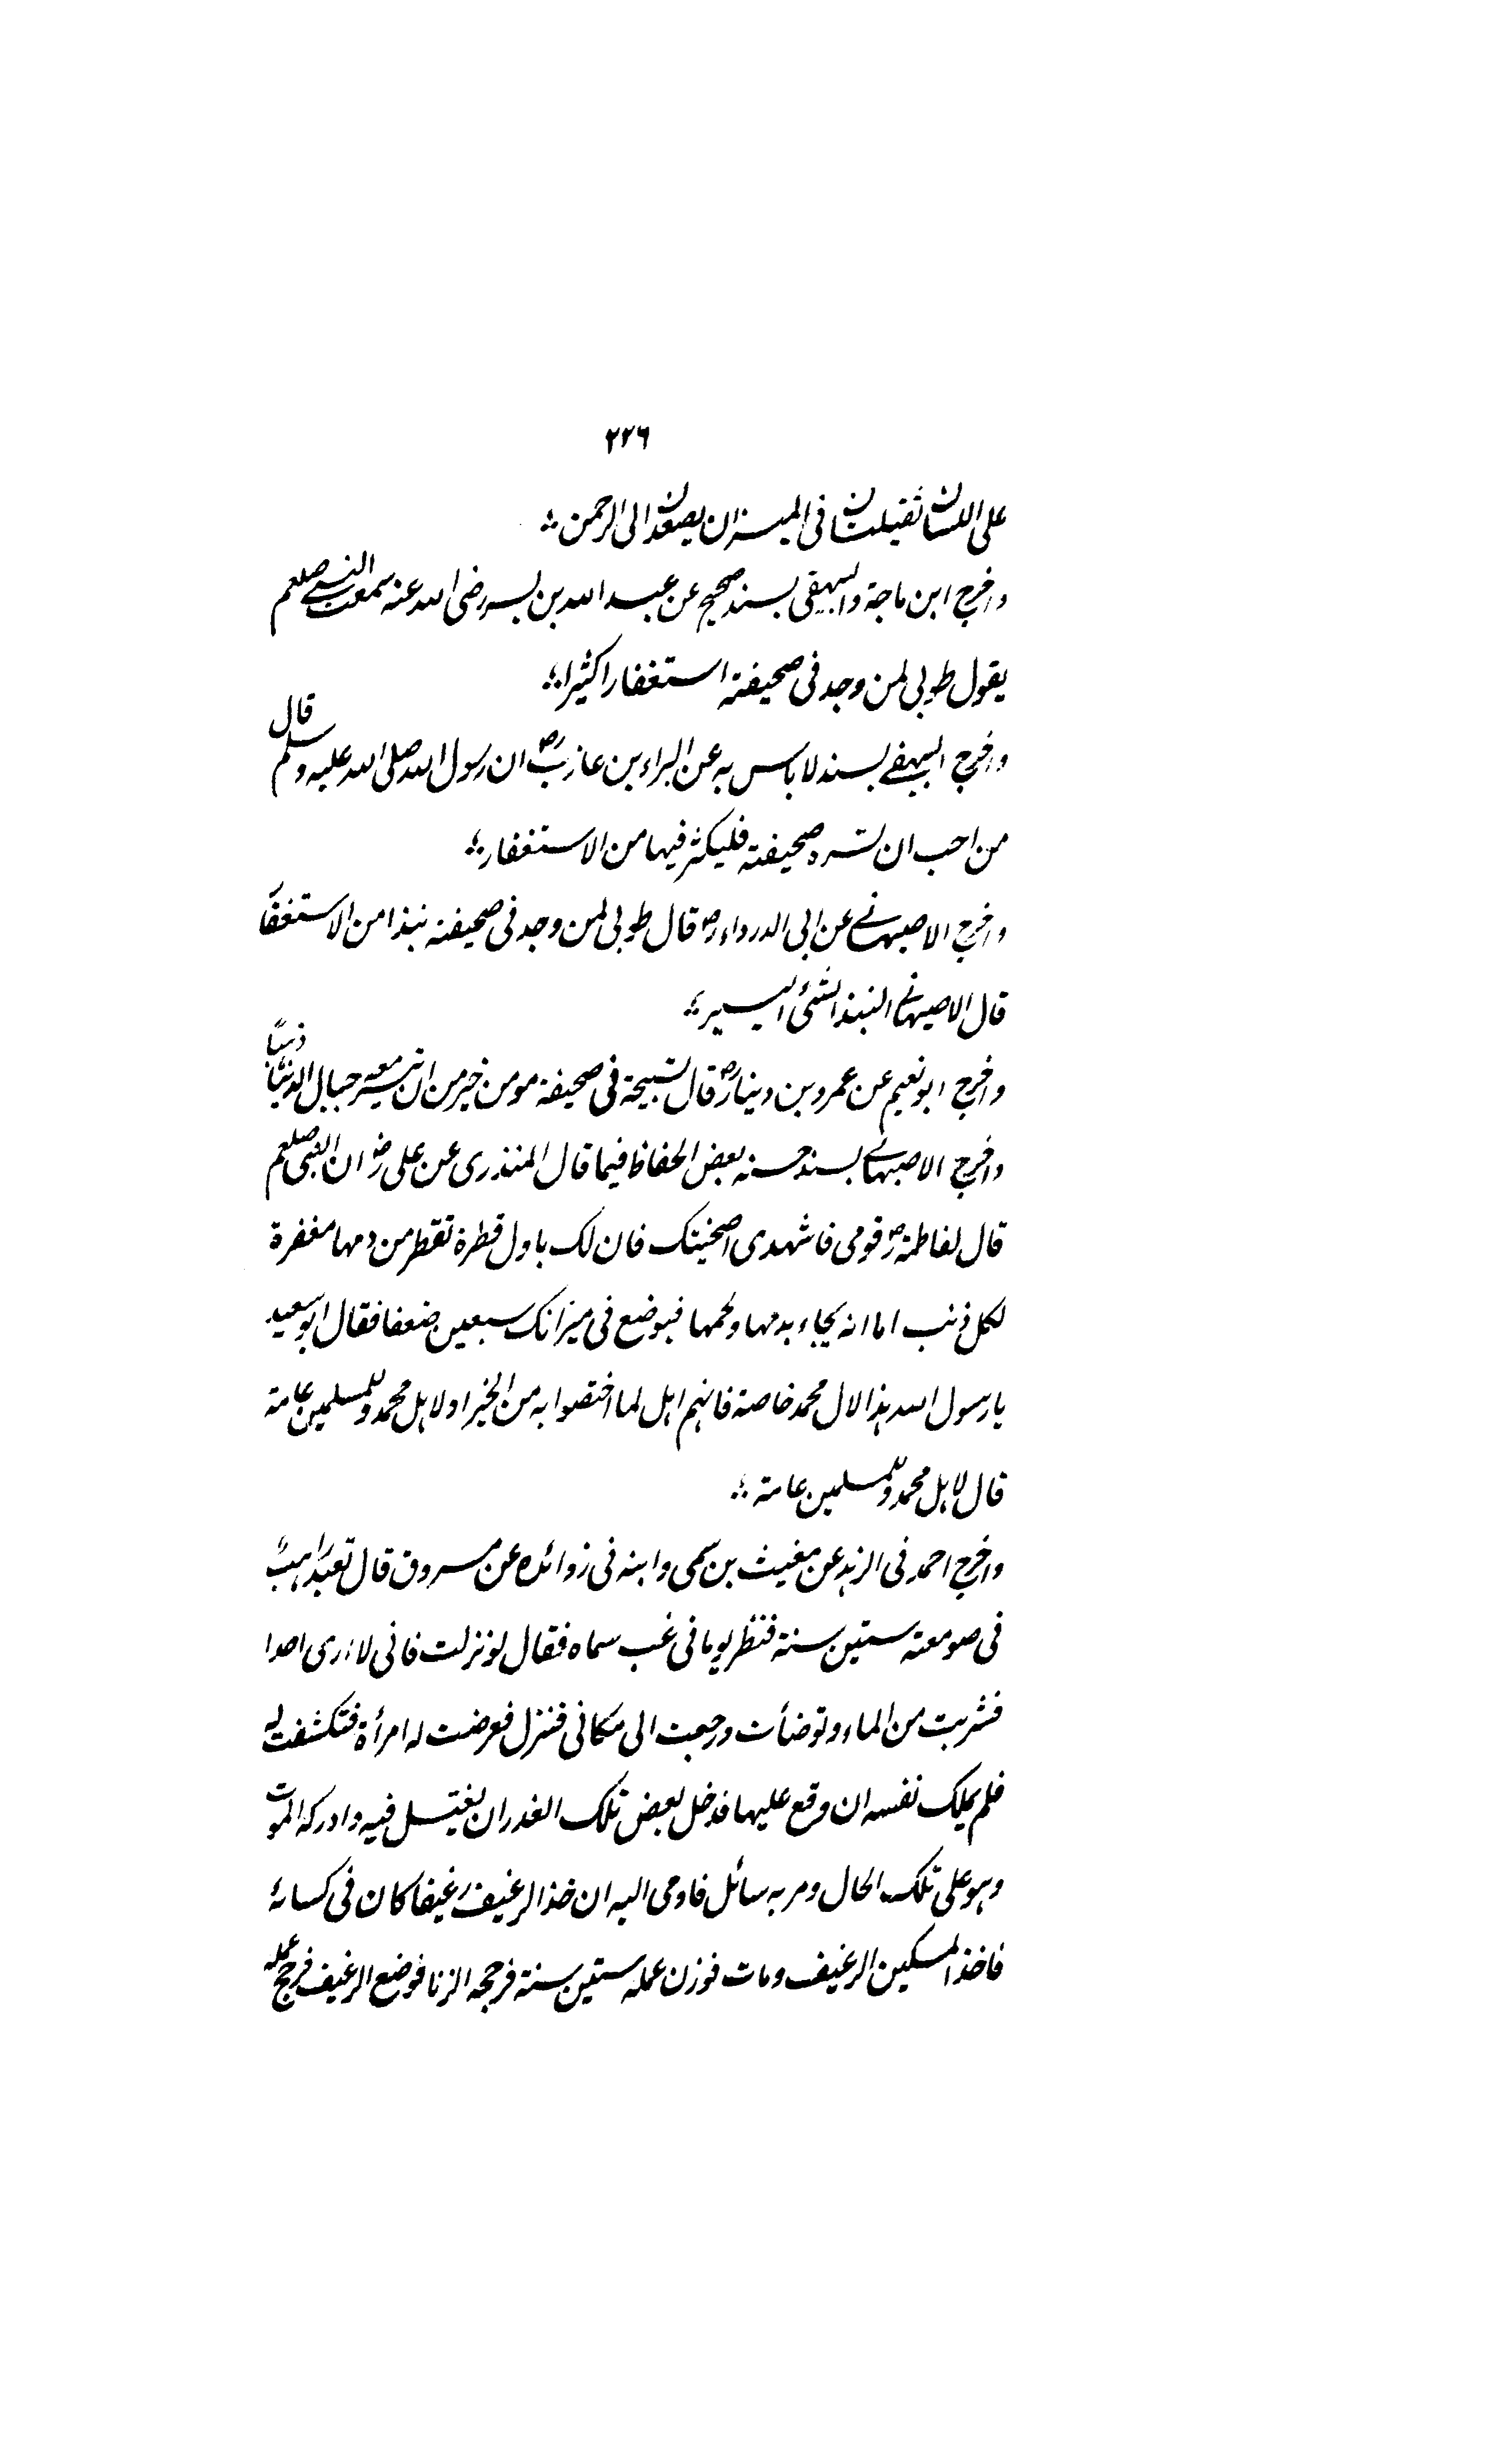 ٢٢٦
على اللسان ثقيلتان فى الميزان يصعدان الى الرحمن ؛
واخرج ابن ماجة والبيهقى بسند صحيح عن عبد الله بن بسر رضى الله عنه سمعت النبي صلعم
يقول طوبى لمن وجد فى صحيفته استغفارا كثيرا ؛
واخرج البيهقے بسند لا باس به عن البراء بن عازب رض ان رسول الله صلى الله عليه وسلم قال
من احب ان تسره صحيفته فليكثر فيها من الاستغفار ؛
واخرج الاصبهانے عن ابى الدرداء رض قال طوبى لمن وجد فى صحيفته نبذا من الاستغفار
قال الاصبهانے النبذ الشئ اليسير ؛
واخرج ابو نعيم عن عمرو بن دينار رض قال تسبيحة فى صحيفة مومن خير من ان تسير معه جبال الدنيا ذهبًا
واخرج الاصبهانے بسند حسنه بعض الحفاظ فيما قال المنذرى عن على رض ان النبى صلعم
قال لفاطمة رض قومى فاشهدى اضحيتك فان لك باول قطرة تقطر من دمها مغفرة
لكل ذنب اما انه يجاء بدمها ولحمها فيوضع فى ميزانك سبعين ضعفا فقال ابو سعيد
يا رسول الله هذا لال محمد خاصة فانهم اهل لما اختصوا به من الخير او لاهل محمد وللمسلمين عامة
قال لاهل محمد وللمسلمين عامة ؛
واخرج احمد فى الزهد عن مغيث بن سمى وابنه فى زوائده عن مسروق قال تعبد راهب
فى صومعته ستين سنة فنظر يوما فى غب سماء فقال لو نزلت فانى لا ارى احدا
فشربت من الماء وتوضأت ورجعت الى مكانى فنزل فعرضت له امرأة فتكشفت له
فلم يملك نفسه ان وقع عليها فدخل بعض تلك الغدران يغتسل فيه وادركه الموت
وهو على تلك الحال ومر به سائل فاومى اليه ان خذ الرغيف رغيفا كان فى كسائه
فاخذ المسكين الرغيف ومات فوزن عمله ستين سنة فرجحه الزنا فوضع الرغيف فرجح عمله